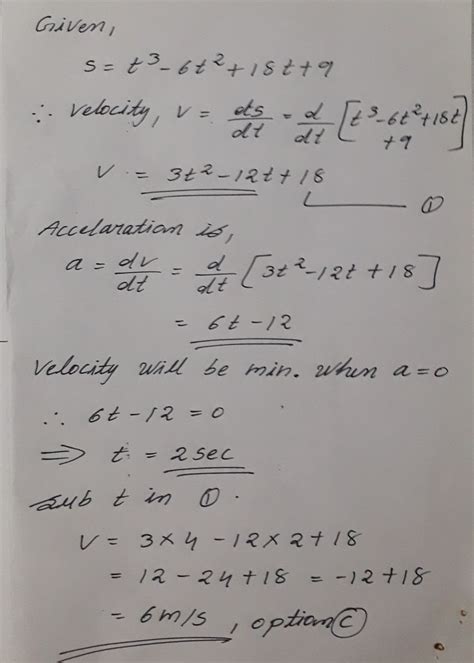 Given,
s = t³ - 6t² + 18t + 9
∴ velocity, v = ds/dt = d/dt [t³ - 6t² + 18t
+ 9]
v = 3t² - 12t + 18
①
Accelaration is,
a = dv/dt = d/dt [3t² - 12t + 18]
= 6t - 12
Velocity will be min. when a = 0
∴ 6t - 12 = 0
⇒ t = 2 sec
sub t in ①.
v = 3 × 4 - 12 × 2 + 18
= 12 - 24 + 18 = -12 + 18
= 6 m/s, option Ⓒ